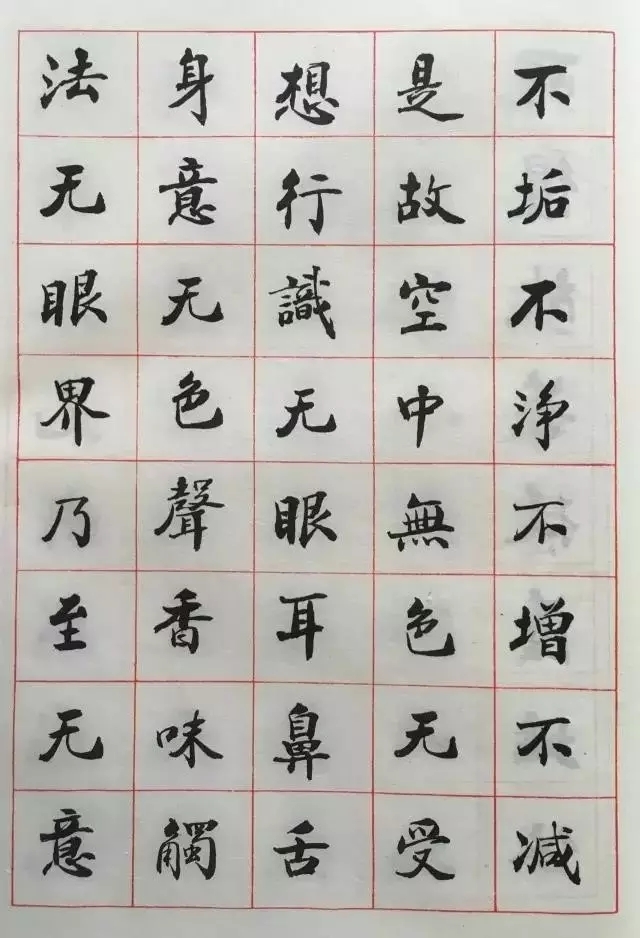 不垢不净不增不减
是故空中無色无受
想行識无眼耳鼻舌
身意无色聲香味觸
法无眼界乃至无意